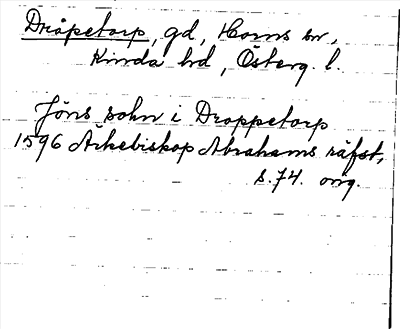 Dråpetorp, gd, Horns sn,
Kinda hd, Österg. l.
Jöns sohn i Droppetorp
1596 Ärkebiskop Abrahams räfst,
s. 74. orig.